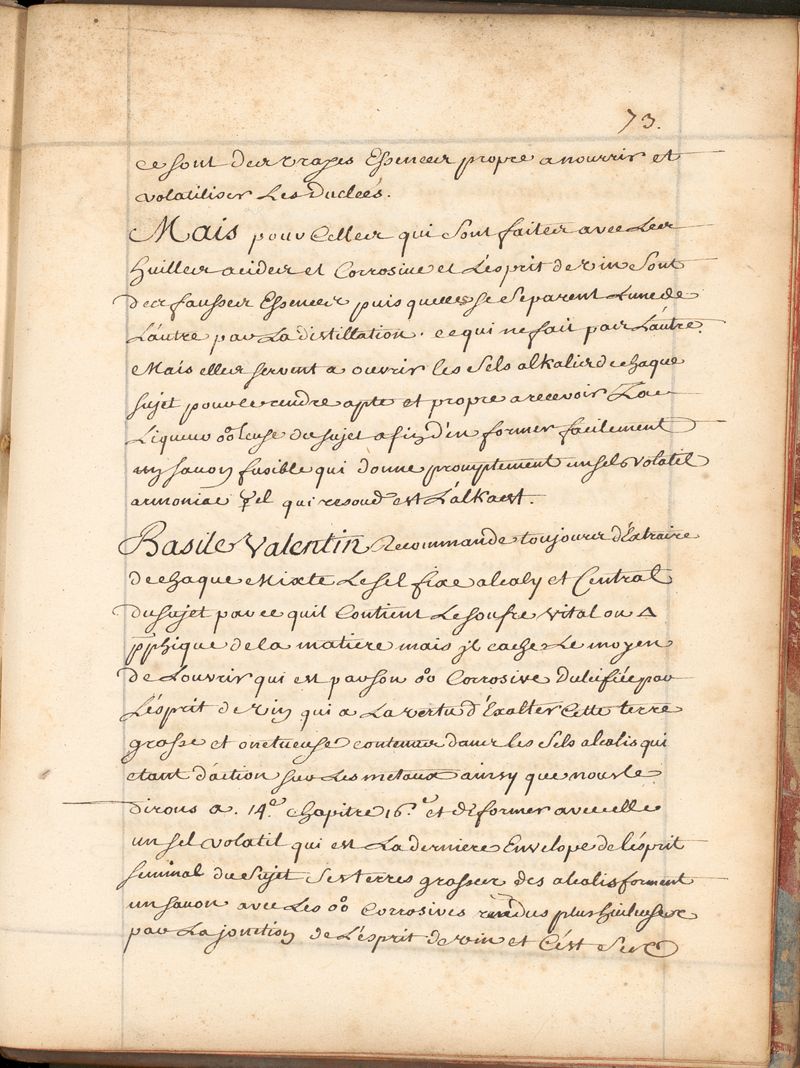 73.
ce sont des vrayes Essences propre a nourrir et
volatiliser Les Duclées.
Mais pour Celles qui sont faites avec Les
huilles acides et Corrosive et L'esprit de vin sont
des fausses Essences puis quelles se separent L'une de
L'autre par La distillation. ce qui ne fait pas L'autre.
Mais elles servent a ouvrir les sels alkalis de chaque
sujet pour le rendre apte et propre a recevoir La
Liqueur oo leuse du sujet afin d'en former facilement
un savon fusible qui donne promptement un sels volatil
armoniac qui resoud est L'alkaest.
Basile Valentin Recommande toujours d'Extraire
de chaque Mixte Le sel fixe alcaly et Central
du sujet par ce quil Contient Le soufre vital ou △
pphique de la matiere mais jl cache Le moyen
de Louvrir qui est par son oo Corrosive Dulcifiée par
L'esprit de vin qui a La vertu d'Exalter Cette terre
grasse et onctueuse contenue dans les sels alcalis qui
etant d'action sur Les metaux ainsy que nous le
dirons a. 14.e chapitre 16.e et de former avec elle
un sel volatil qui est La derniere Envelope de l'esprit
seminal du sujet Ses terres grasses des alcalis forment
un savon avec Les oo Corrosives rendus plus huileuse
par La jonction de L'esprit de vin et C'est